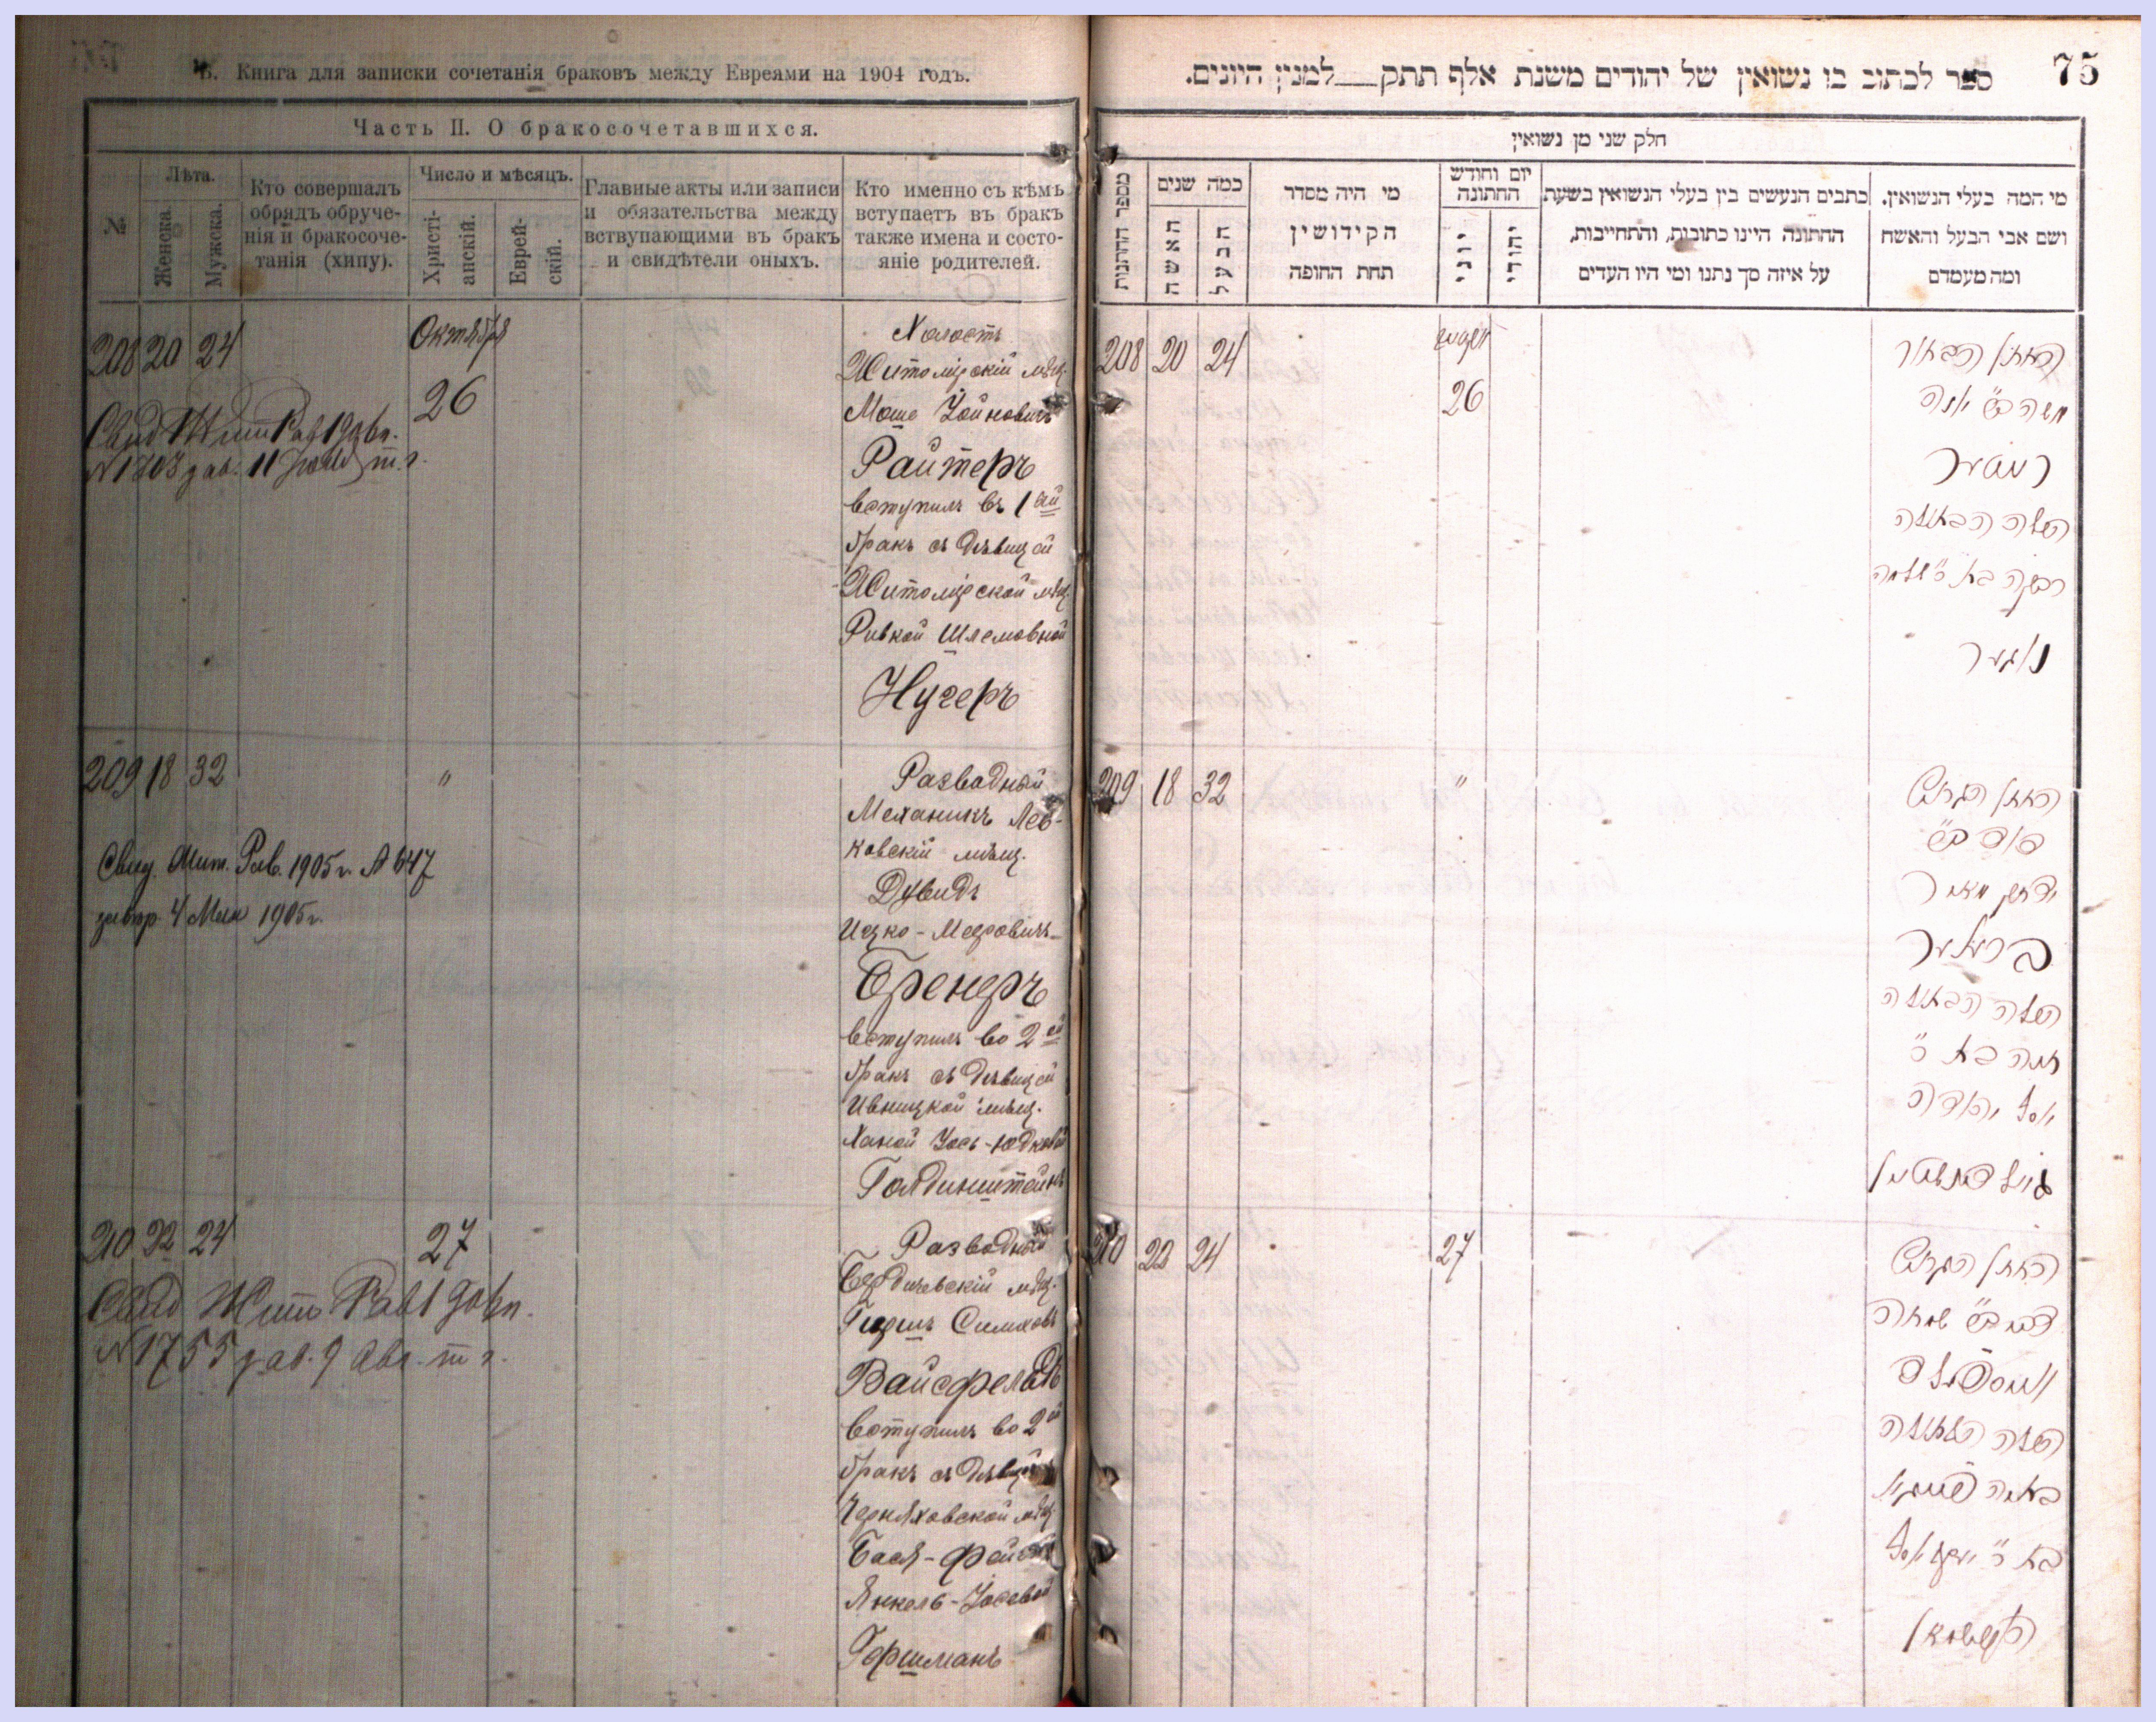 В. Книга для записки сочетанія браковъ между Евреями на 1904 годъ.
Часть II. О бракосочетавшихся.
№
Лѣта.
Женска.
Мужска.
Кто совершалъ
обрядъ обруче-
нія и бракосоче-
танія (хипу).
Число и мѣсяцъ.
Христі-
анскій.
Еврей-
скій.
Главные акты или записи
и обязательства между
вствупающими въ бракъ
и свидѣтели оныхъ.
Кто именно съ кѣмъ
вступаетъ въ бракъ
также имена и состо-
яніе родителей.
208 20 24
Октября
26
Свид Жит Рав 1904г.
т.г.
Холостъ
Житомірскій мѣщ.
Моше Іойновичъ
Райтеръ
вступилъ въ 1ый
бракъ съ дѣвицей
Житомірской мѣщ
Ривкой Шлемовной
Нугеръ
209 18 32 "
Свид. Жит. Рав. 1905 г. № 647
4 Мая 1905 г.
Разводный
Механикъ Лев-
ковскій мѣщ.
Дувидъ
Ицко-Мееровичъ
Бренеръ
вступилъ во 2ой
бракъ съ дѣвицей
Ивницкой мѣщ.
Ханой Іось-Юдковой
Голдинштейнъ
210 22 24 27
Свид Жит Рав
№ 1755 9 Авг. т г.
Разводный
Бердичевскій мѣщ.
Гершъ Симховъ
Вайсфельдъ
вступилъ во 2й
бракъ съ дѣвицей
Черняховской мѣщ
Бася-Фейга
Янкель-Іосевой
Гофшманъ
75
ספר לכתוב בו נשואין של יהודים משנת אלף תתק למנין היונים.
חלק שני מן נשואין
מספר החתנות
כמה שנים
האשה
הבעל
מי היה מסדר
הקידושין
תחת החופה
יום וחודש
החתונה
יוני
יהודי
כתבים הנעשים בין בעלי הנשואין בשעת
החתונה היינו כתובות, והתחייבות,
על איזה סך נתנו ומי היו העדים
מי המה בעלי הנשואין.
ושם אבי הבעל והאשה
ומה מעמדם
208 20 24
26
החתן הבחור
משה ב"ר יונה
רייטער
הכלה הבתולה
רבקה בת ר' שלמה
נוגער
209 18 32 "
החתן הגרוש
דוד ב"ר
יצחק מאיר
ברענער
הכלה הבתולה
חנה בת ר'
יוסל יהודה
גולדינשטיין
210 22 24
27
החתן הגרוש
הירש ב"ר שמחה
ווייספעלד
הכלה הבתולה
באסיה פייגא
בת ר' יעקב יוסל